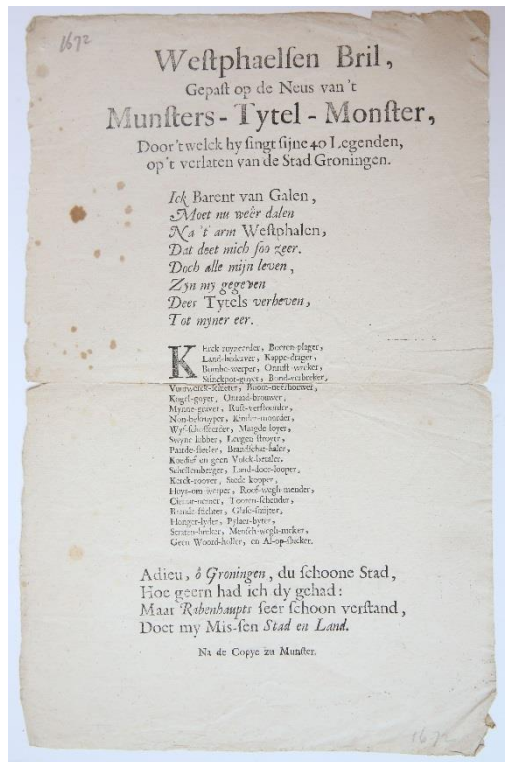 1672
Weſtphaelſen Bril,
Gepaſt op de Neus van 't
Munſters-Tytel-Monſter,
Door 't welck hy ſingt ſijne 40 Legenden,
op 't verlaten van de Stad Groningen.
Ick Barent van Galen,
Moet nu weêr dalen
Na 't arm Weſtphalen,
Dat deet mich ſoo zeer.
Doch alle mijn leven,
Zyn my gegeven
Dees Tytels verheven,
Tot myner eer.
Kerck-ruyneerder, Boeren-plager,
Land-bederver, Kappe-drager,
Bombe-werper, Onruſt-wecker,
Stinckpot-goyer, Bond-verbreker,
Vuurwerck-ſchieter, Boom-neerhouwer,
Kogel-goyer, Onraad-brouwer,
Mynne-graver, Ruſt-verſtoorder,
Non-bekruyper, Kinder-moorder,
Wyf-ſchoffeerder, Maegde-loyer,
Swyne-lubber, Leegen-ſtroyer,
Paarde-ſteeler, Brandſchat-haler,
Koedief en geen Volck-betaler.
Schellemberger, Land-door-looper,
Kerck-roover, Stede-kooper,
Huys-om-werper, Roof-wegh-mender,
-nemer, Tooren-ſchender,
Brande-ſtichter, Glaſe-ſmijter,
Honger-lyder, Pylaer-byter,
Straten-breker, Menſch-wegh-rucker,
Geen Woord-houder, en Al-op-ſlicker.
Adieu, ô Groningen, du ſchoone Stad,
Hoe geern had ich dy gehad:
Maar Rabenhaupts ſeer ſchoon verſtand,
Doet my Miſ-ſen Stad en Land.
Na de Copye zu Munſter.
1672